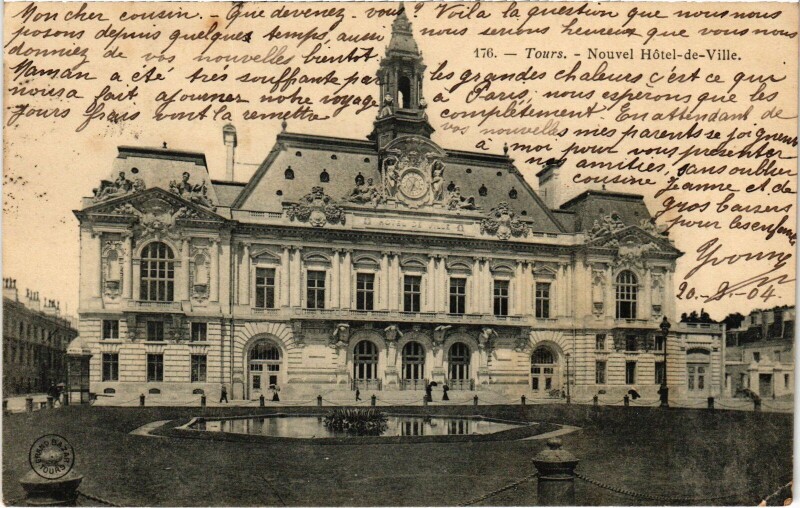 Mon cher cousin. Que devenez-vous? Voilà la question que nous nous
posons depuis quelques temps, aussi nous serions heureux que vous nous
donniez de vos nouvelles bientôt.
176. — Tours. - Nouvel Hôtel-de-Ville.
Maman a été très souffrante par les grandes chaleurs c'est ce qui
nous a fait ajourner notre voyage à Paris, nous espérons que les
jours frais vont la remettre complètement. En attendant de
vos nouvelles mes parents se joignent
à moi pour vous présenter
nos amitiés, sans oublier
cousine Jeanne et de
gros baisers
pour les enfants
Yvonne
HOTEL DE VILLE
GRAND BAZAR
TOURS